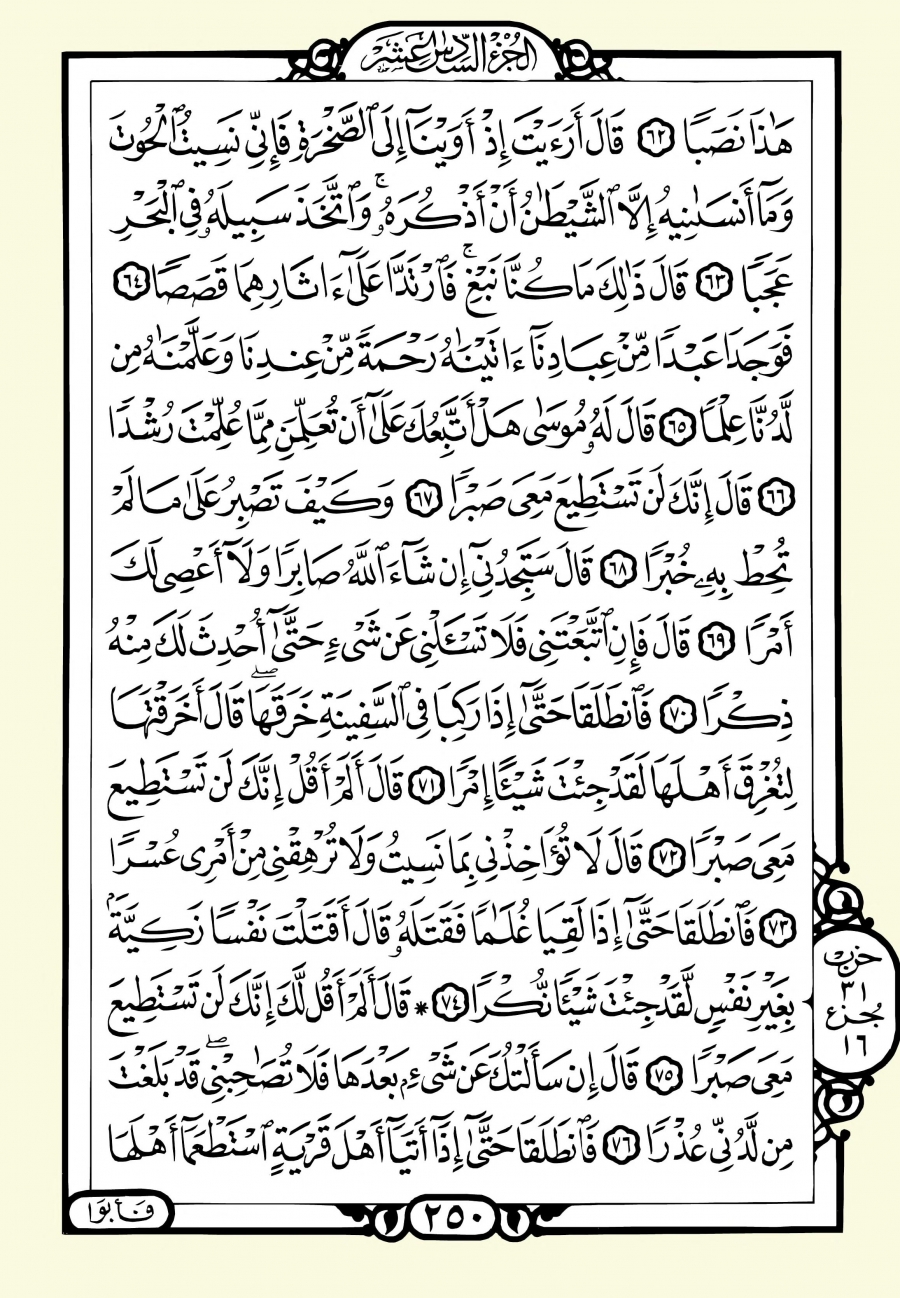 الجزء السادس عشر
هَٰذَا نَصَبًا ٦٢ قَالَ أَرَءَيْتَ إِذْ أَوَيْنَآ إِلَى ٱلصَّخْرَةِ فَإِنِّي نَسِيتُ ٱلْحُوتَ
وَمَآ أَنسَىٰنِيهُ إِلَّا ٱلشَّيْطَٰنُ أَنْ أَذْكُرَهُۥ ۚ وَٱتَّخَذَ سَبِيلَهُۥ فِي ٱلْبَحْرِ
عَجَبًا ٦٣ قَالَ ذَٰلِكَ مَا كُنَّا نَبْغِ ۚ فَٱرْتَدَّا عَلَىٰٓ ءَاثَارِهِمَا قَصَصًا ٦٤
فَوَجَدَا عَبْدًا مِّنْ عِبَادِنَآ ءَاتَيْنَٰهُ رَحْمَةً مِّنْ عِندِنَا وَعَلَّمْنَٰهُ مِن
لَّدُنَّا عِلْمًا ٦٥ قَالَ لَهُۥ مُوسَىٰ هَلْ أَتَّبِعُكَ عَلَىٰٓ أَن تُعَلِّمَنِ مِمَّا عُلِّمْتَ رُشْدًا
٦٦ قَالَ إِنَّكَ لَن تَسْتَطِيعَ مَعِيَ صَبْرًا ٦٧ وَكَيْفَ تَصْبِرُ عَلَىٰ مَا لَمْ
تُحِطْ بِهِۦ خُبْرًا ٦٨ قَالَ سَتَجِدُنِيٓ إِن شَآءَ ٱللَّهُ صَابِرًا وَلَآ أَعْصِي لَكَ
أَمْرًا ٦٩ قَالَ فَإِنِ ٱتَّبَعْتَنِي فَلَا تَسْـَٔلْنِي عَن شَيْءٍ حَتَّىٰٓ أُحْدِثَ لَكَ مِنْهُ
ذِكْرًا ٧٠ فَٱنطَلَقَا حَتَّىٰٓ إِذَا رَكِبَا فِي ٱلسَّفِينَةِ خَرَقَهَا ۖ قَالَ أَخَرَقْتَهَا
لِتُغْرِقَ أَهْلَهَا لَقَدْ جِئْتَ شَيْـًٔا إِمْرًا ٧١ قَالَ أَلَمْ أَقُلْ إِنَّكَ لَن تَسْتَطِيعَ
مَعِيَ صَبْرًا ٧٢ قَالَ لَا تُؤَاخِذْنِي بِمَا نَسِيتُ وَلَا تُرْهِقْنِي مِنْ أَمْرِي عُسْرًا
٧٣ فَٱنطَلَقَا حَتَّىٰٓ إِذَا لَقِيَا غُلَٰمًا فَقَتَلَهُۥ قَالَ أَقَتَلْتَ نَفْسًا زَكِيَّةًۢ
بِغَيْرِ نَفْسٍ لَّقَدْ جِئْتَ شَيْـًٔا نُّكْرًا ٧٤ * قَالَ أَلَمْ أَقُل لَّكَ إِنَّكَ لَن تَسْتَطِيعَ
مَعِيَ صَبْرًا ٧٥ قَالَ إِن سَأَلْتُكَ عَن شَيْءٍۭ بَعْدَهَا فَلَا تُصَٰحِبْنِي ۖ قَدْ بَلَغْتَ
مِن لَّدُنِّي عُذْرًا ٧٦ فَٱنطَلَقَا حَتَّىٰٓ إِذَآ أَتَيَآ أَهْلَ قَرْيَةٍ ٱسْتَطْعَمَآ أَهْلَهَا
حزب
٣١
جزء
١٦
فأبوا
٢٥٠